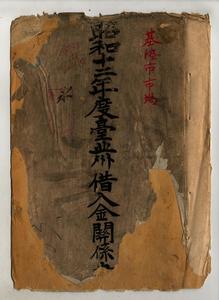 基隆市市場
昭和十三年度臺北州借入金關係